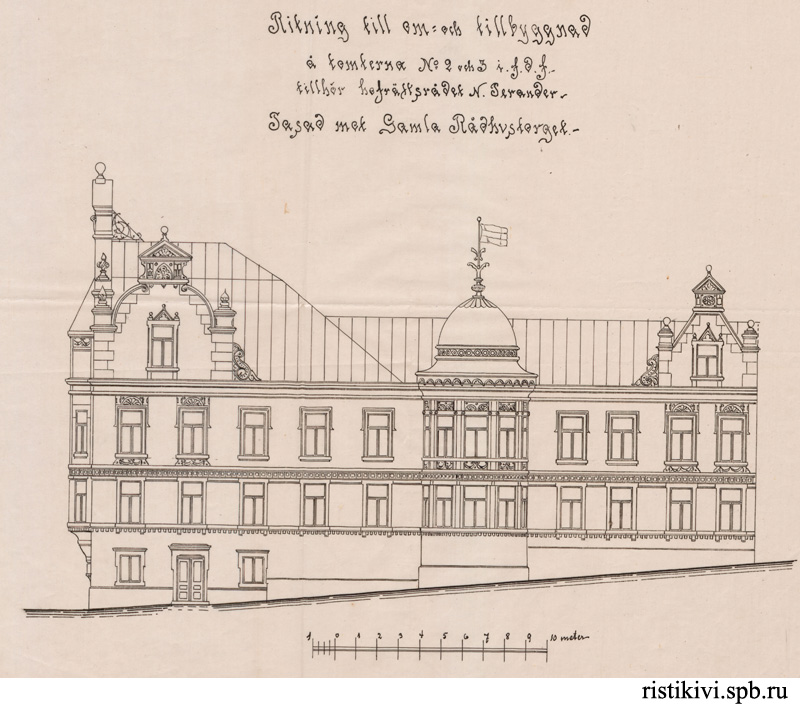 Ritning till om= och tillbyggnad
å tomterna No 2 och 3 i. f. d. f.
tillhör hofrättsrådet N. Terander.
Fasad mot Gamla Rådhustorget.
1 0 1 2 3 4 5 6 7 8 9 10 meter
ristikivi.spb.ru